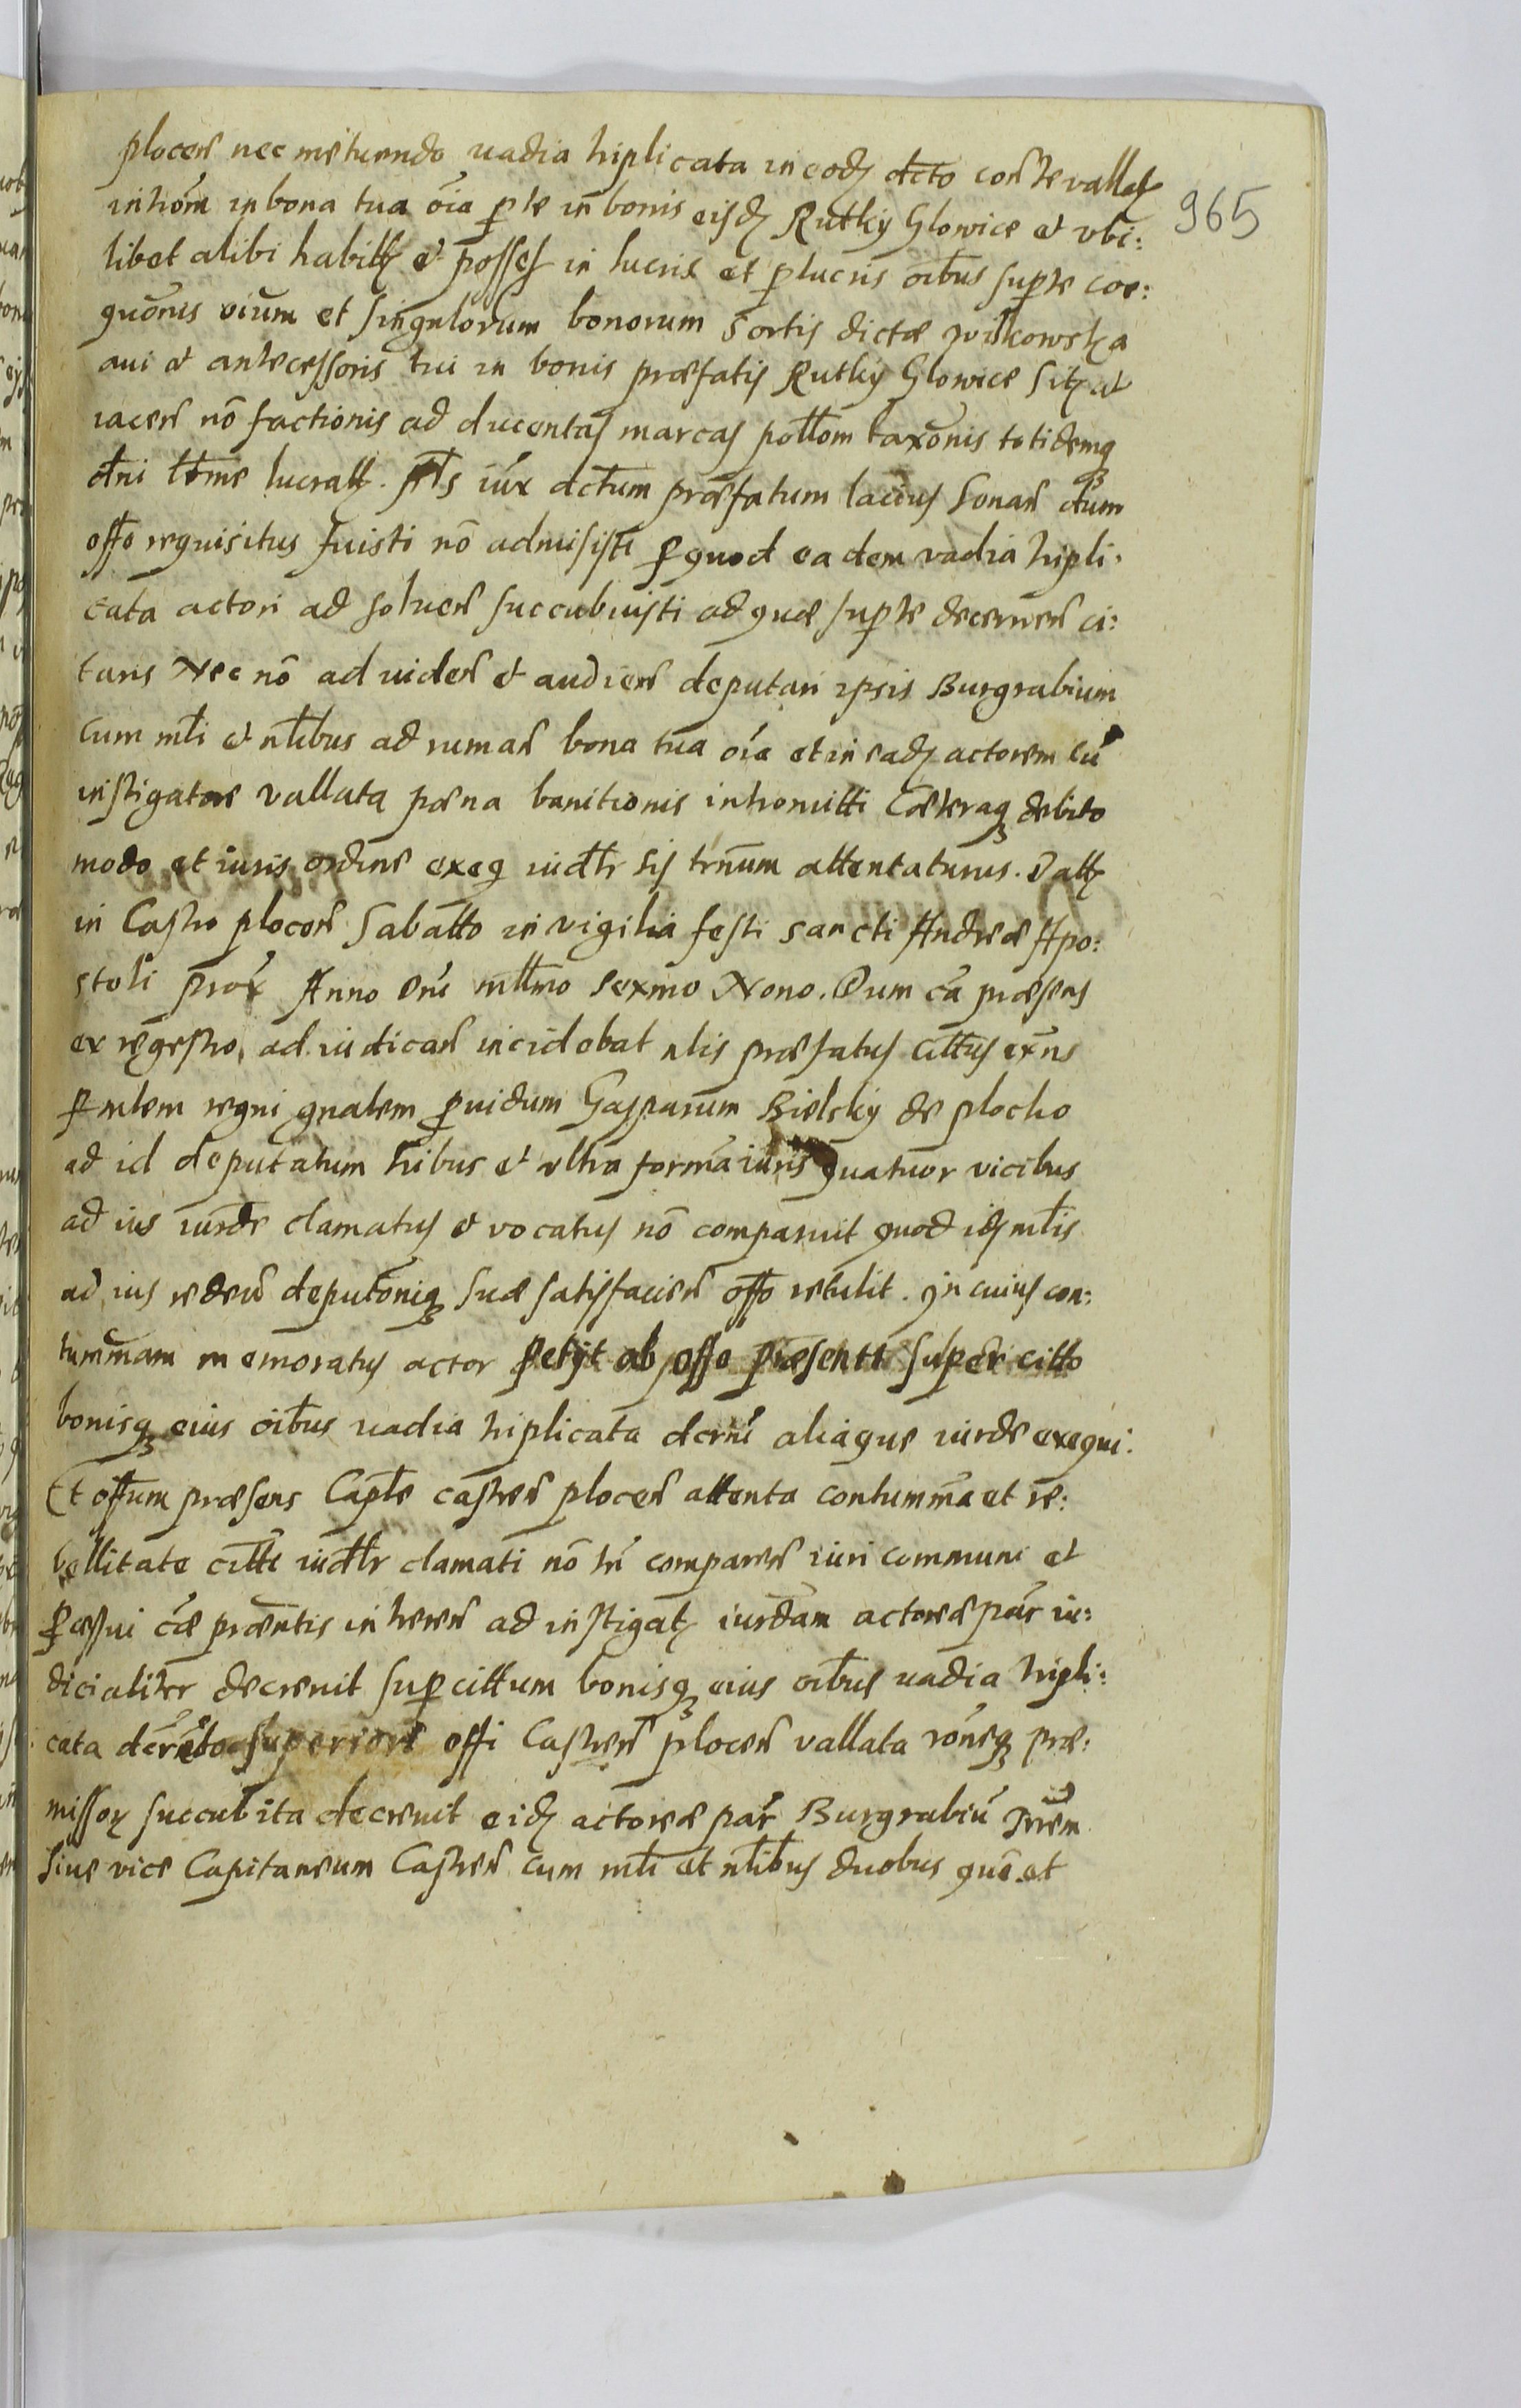 plocen̄ nec metuendo vadia triplicata in eodȝ dcto con̄te vallatȝ
965
introm̄ in bona tua oīa prte in bonis eisdȝ Rutky Glowice et vbi:
libet alibi habitȝ et posses in lucris et prlucris oībus suprte coe:
quōnis oium et singulorum bonorum sortis dictæ Wilkowska
aui et antecessoris tui in bonis præfatis Rutky Glowice sitȝ et
iacen̄ nō factionis ad ducentas marcas pollom taxōnis totidemqȝ
dni ltme lucratȝ. iux dctum præfatum lacius sonan̄ dum
offo requisitus fuisti nō admisisti pquod eadem vadia tripli:
cata actori ad soluen̄ succubuisti ad quæ suprte decernen̄ ci:
taris Nec nō ad viden̄ et audien̄ deputari ipsis Burgrabium
cum mtli et nlibus ad ruman̄ bona tua oīa et in eadȝ actorem cū
instigatore vallata pæna banitionis intromitti Cæteraqȝ debito
modo et iuris ordine exeq iudtr sis trnum attentaturus. Datȝ
in Castro plocen̄ Sabatto in vigilia festi sancti Andreæ Apo:
stoli prox̄ Anno Dnī mllmo sexmo Nono. Dum cā præsens
ex regestro ad iudican̄ incidebat nlis præfatus cittus exn̄s
p mlem regni gnalem pvidum Gasparum Bielsky de plocko
ad id deputatum tribus et vltra formā iuris quatuor vicibus
ad ius iurde clamatus et vocatus nō comparuit quod idȝ mlis
ad ius redeu͂ deputōniqȝ suæ satisfacien̄ offo retulit. In cuius con:
tummam memoratus actor petijt ab offo præsenti super citto
bonisqȝ eius oībus vadia triplicata dcrni aliaque iurde exequi.
Et offum præsens Captle castren̄ plocen̄ attenta contummā et re:
bellitate citti iudtr clamati nō tn̄ comparen̄ iuri communi et
pcessui cæ præntis inheren̄ ad instigatȝ iurdam actoreæ par̄ iu:
dicialiter decreuit supr cittum bonisqȝ eius oībus vadia tripli:
cata dcreto superiore offi Castren̄ plocen̄ vallata rōneqȝ præ:
missorȝ succubita decreuit eidȝ actoreæ par̄ Burgrabiū
siue vice Capitaneum Castren̄ cum mtli et nlibus duobus quē et